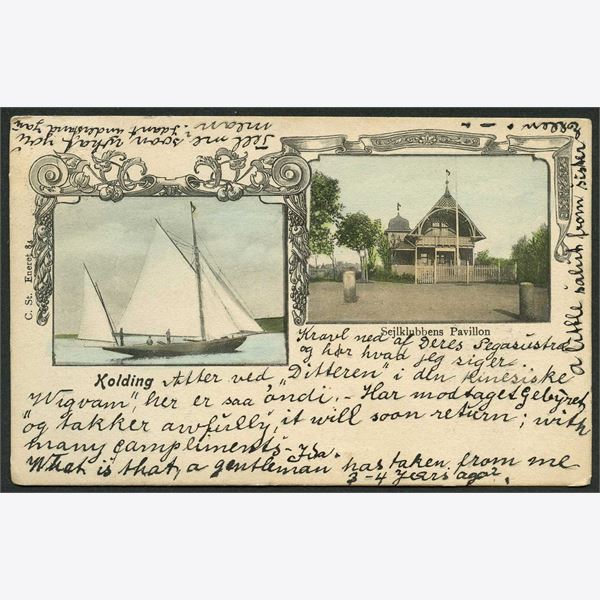 Tell me, soon what you
mean. I dont understand you
Ellen.
a little salut from sister
C. St. Eneret 84
Sejlklubbens Pavillon
Kravl ned af Deres Pegasustro
og hør hvad jeg siger..
Kolding
Atter ved „Ditteren" i den kinesiske
"Wigvam", her er saa ondi, - Har modtaget Gebyret
og takker awfully, it will soon return; with
many compliments - Ida.
What is that, a gentleman has taken from me
3-4 Years ago?